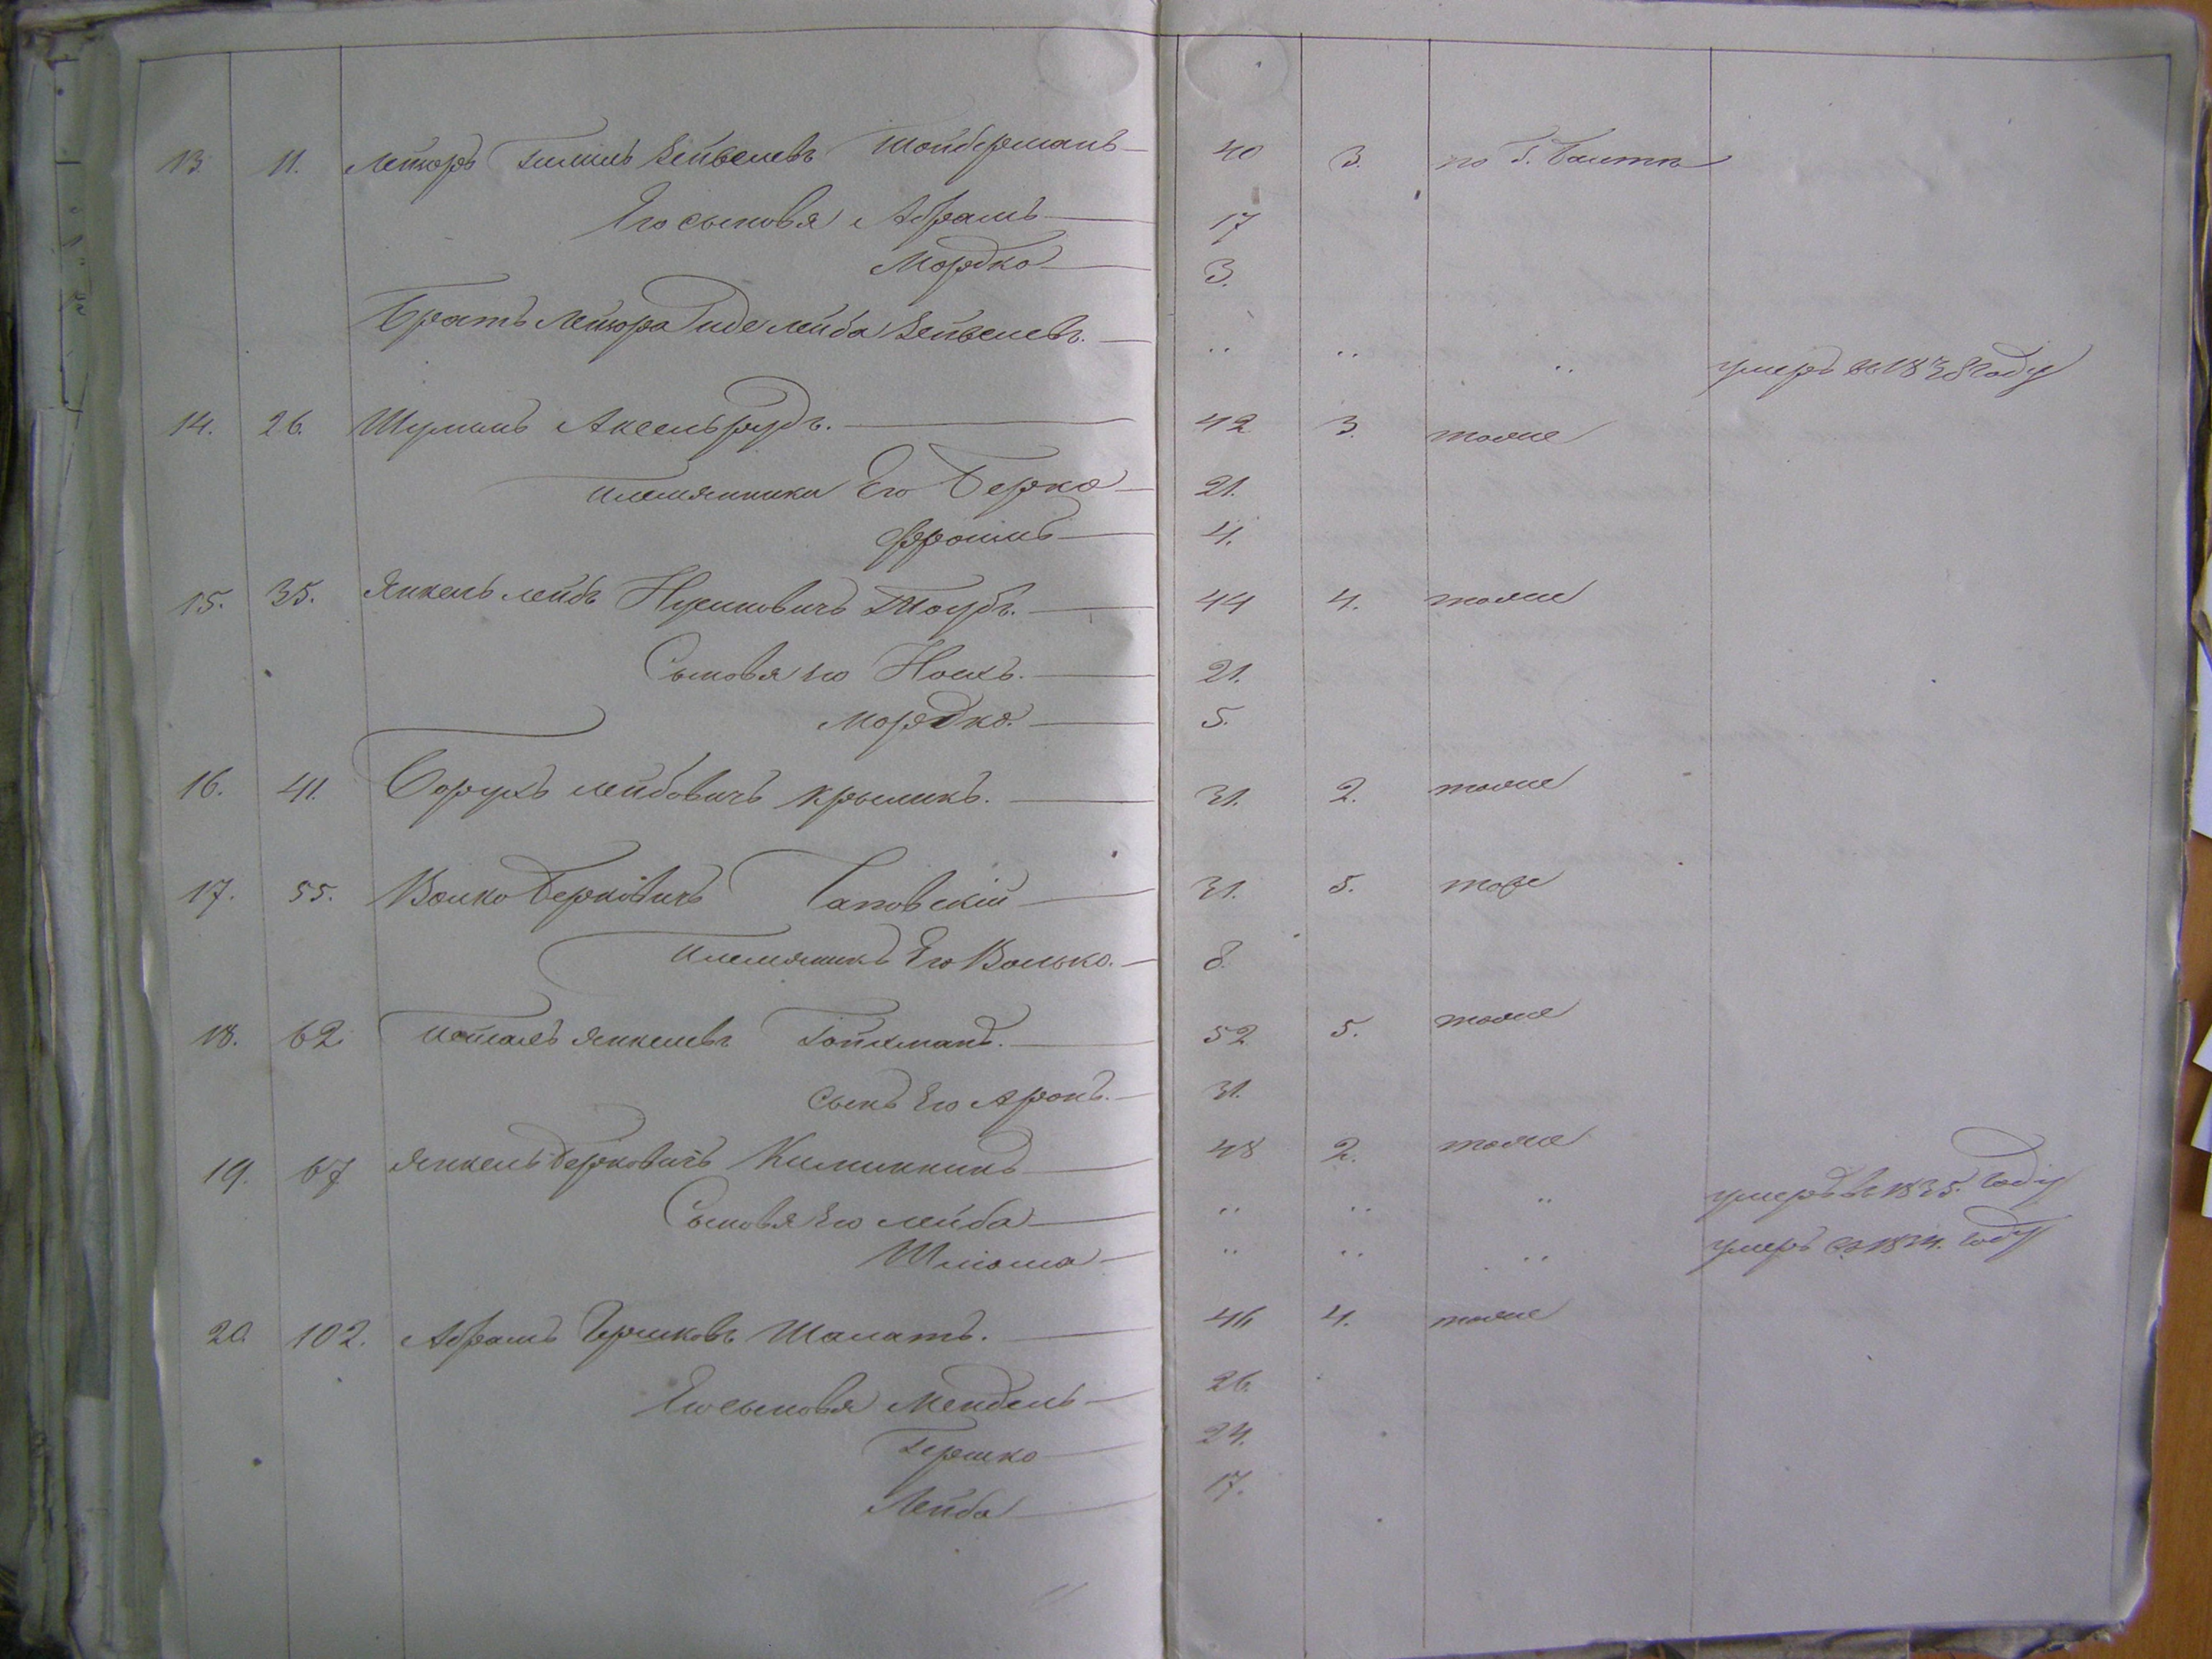 13. 11. Лейзоръ Гимпль Вейвелевъ Тойберманъ 40 3. по Г. Балтѣ
Его сыновья Абрамъ 17
Мордко 3.
Братъ Лейзора Лейба Вейвелевъ. умеръ въ 1838 году
14. 26. Шулимъ Аксельрудъ. 42 3. тоже
племянники Его Берко 21.
Фроимъ 4.
15. 35. Янкель Лейбъ Нусиновичъ Таубъ. 44 4. тоже
Сыновья его Носхъ. 21.
Мордко. 5.
16. 41. Борухъ Лейбовичъ Крымикъ. 31. 2. тоже
17. 55. Волко Берковичъ 31. 5. тоже
племяникъ Его Волько. 8.
18. 62. Янкелевъ Гойхманъ. 52 5. тоже
сынъ Его Аронъ. 31.
19. 67 Янкель Берковичъ Килимникъ 48 2. тоже
Сыновья Его Лейба умеръ въ 1835. году
Шліома умеръ въ 1834. году
20. 102. Абрамъ Гершковъ Шаматъ. 46 4. тоже
Его сыновья Мендель 26.
Гершко 24.
Лейба 17.